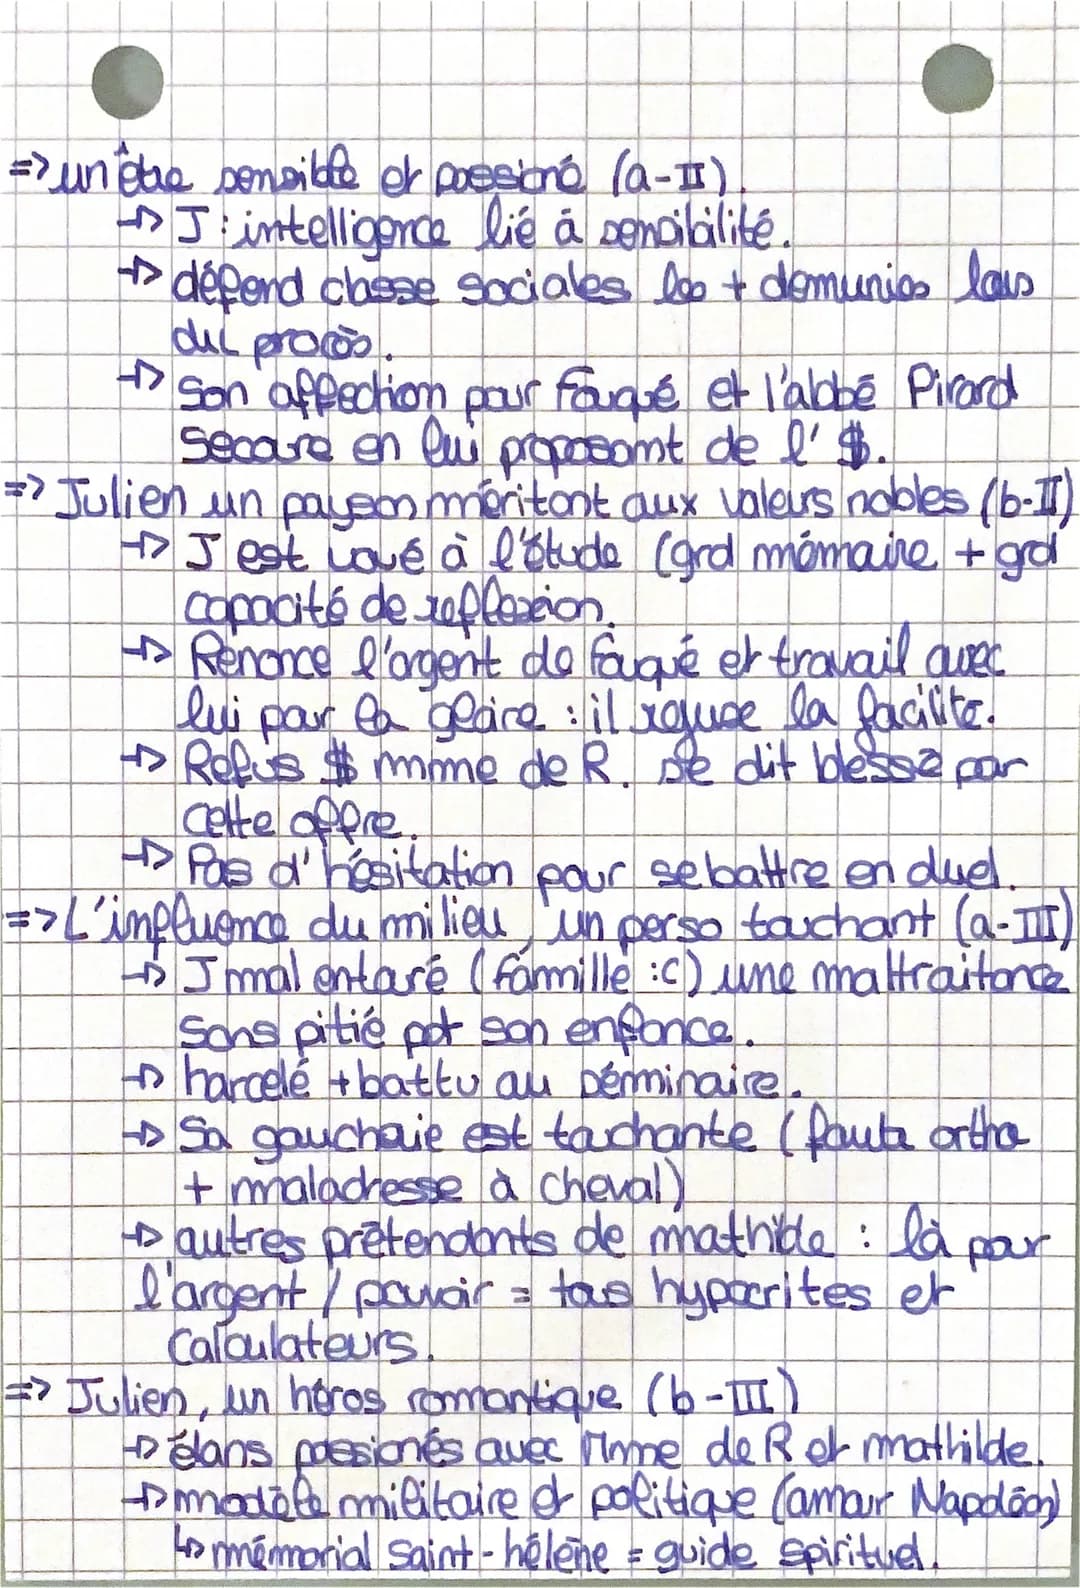 => un être sensible et passioné (a-II).
-> J : intelligence lié à sensibilité.
-> défend classe sociales les + demunies lors
du procès.
-> Son affection pour Fouqué et l'abbé Pirard
Secoure en lui proposant de l'$.
=> Julien un paysan méritant aux valeurs nobles (b-II)
-> J est voué à l'étude (grd mémoire + grd
capacité de reflexion.
-> Renonce l'argent de Fouqué et travail avec
lui pour la gloire : il refuse la facilité.
-> Refus $ mme de R. se dit blessé par
cette offre.
-> Pas d'hésitation pour se battre en duel.
=> L'influence du milieu, un perso touchant (a-III)
-> J mal entouré (famille :c) une maltraitance
Sans pitié pdt son enfance.
-> harcelé + battu au séminaire.
-> Sa gaucherie est touchante (faute ortho
+ maladresse à cheval)
-> autres prétendants de mathilde : là pour
l'argent / pouvoir = tous hypocrites et
Calculateurs.
=> Julien, un héros romantique (b-III)
-> élans passionés avec Mme de R et mathilde.
-> modèle militaire et politique (amour Napoléon)
↳ mémorial Saint-hélène = guide spirituel.